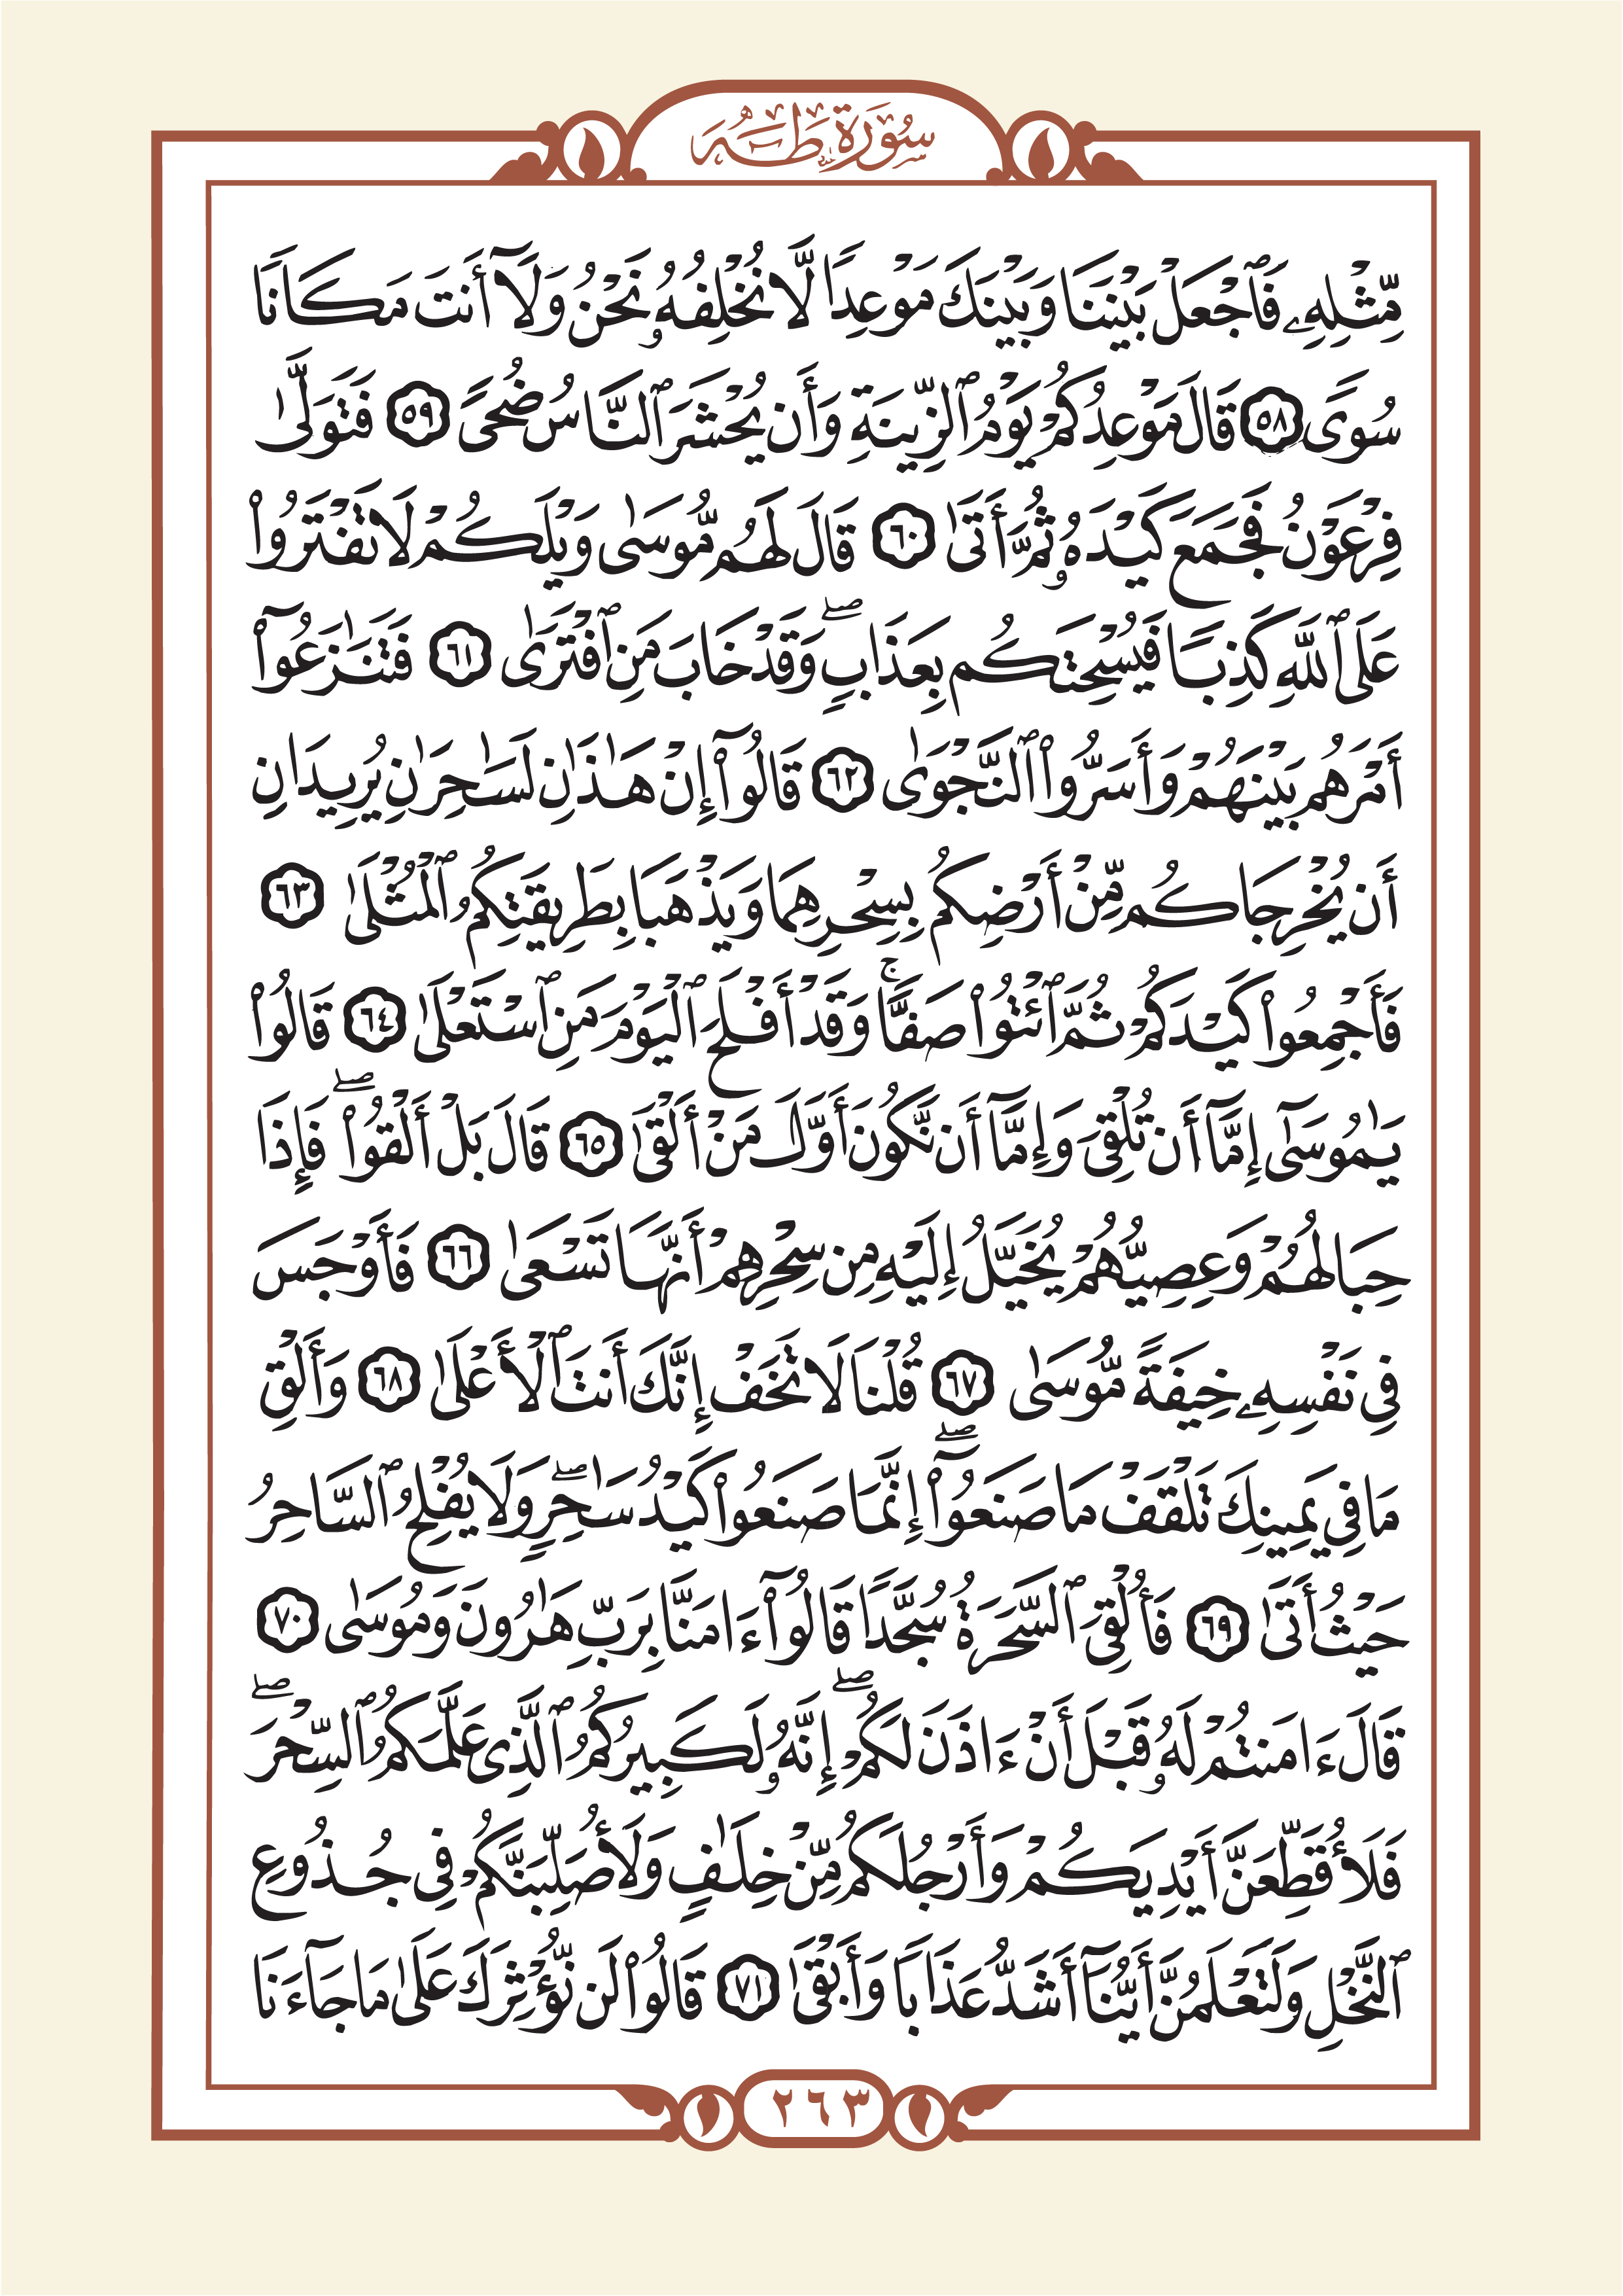 سُورَةِ طَهَ
مِّثْلِهِۦ فَٱجْعَلْ بَيْنَنَا وَبَيْنَكَ مَوْعِدًا لَّا نُخْلِفُهُۥ نَحْنُ وَلَآ أَنتَ مَكَانًا
سُوًى ٥٨ قَالَ مَوْعِدُكُمْ يَوْمُ ٱلزِّينَةِ وَأَن يُحْشَرَ ٱلنَّاسُ ضُحًى ٥٩ فَتَوَلَّىٰ
فِرْعَوْنُ فَجَمَعَ كَيْدَهُۥ ثُمَّ أَتَىٰ ٦٠ قَالَ لَهُم مُّوسَىٰ وَيْلَكُمْ لَا تَفْتَرُوا۟
عَلَى ٱللَّهِ كَذِبًا فَيُسْحِتَكُم بِعَذَابٍ ۖ وَقَدْ خَابَ مَنِ ٱفْتَرَىٰ ٦١ فَتَنَـٰزَعُوٓا۟
أَمْرَهُم بَيْنَهُمْ وَأَسَرُّوا۟ ٱلنَّجْوَىٰ ٦٢ قَالُوٓا۟ إِنْ هَـٰذَٰنِ لَسَـٰحِرَٰنِ يُرِيدَانِ
أَن يُخْرِجَاكُم مِّنْ أَرْضِكُم بِسِحْرِهِمَا وَيَذْهَبَا بِطَرِيقَتِكُمُ ٱلْمُثْلَىٰ ٦٣
فَأَجْمِعُوا۟ كَيْدَكُمْ ثُمَّ ٱئْتُوا۟ صَفًّا ۚ وَقَدْ أَفْلَحَ ٱلْيَوْمَ مَنِ ٱسْتَعْلَىٰ ٦٤ قَالُوا۟
يَـٰمُوسَىٰٓ إِمَّآ أَن تُلْقِىَ وَإِمَّآ أَن نَّكُونَ أَوَّلَ مَنْ أَلْقَىٰ ٦٥ قَالَ بَلْ أَلْقُوا۟ ۖ فَإِذَا
حِبَالُهُمْ وَعِصِيُّهُمْ يُخَيَّلُ إِلَيْهِ مِن سِحْرِهِمْ أَنَّهَا تَسْعَىٰ ٦٦ فَأَوْجَسَ
فِى نَفْسِهِۦ خِيفَةً مُّوسَىٰ ٦٧ قُلْنَا لَا تَخَفْ إِنَّكَ أَنتَ ٱلْأَعْلَىٰ ٦٨ وَأَلْقِ
مَا فِى يَمِينِكَ تَلْقَفْ مَا صَنَعُوٓا۟ ۖ إِنَّمَا صَنَعُوا۟ كَيْدُ سَـٰحِرٍ ۖ وَلَا يُفْلِحُ ٱلسَّاحِرُ
حَيْثُ أَتَىٰ ٦٩ فَأُلْقِىَ ٱلسَّحَرَةُ سُجَّدًا قَالُوٓا۟ ءَامَنَّا بِرَبِّ هَـٰرُونَ وَمُوسَىٰ ٧٠
قَالَ ءَامَنتُمْ لَهُۥ قَبْلَ أَنْ ءَاذَنَ لَكُمْ ۖ إِنَّهُۥ لَكَبِيرُكُمُ ٱلَّذِى عَلَّمَكُمُ ٱلسِّحْرَ ۖ
فَلَأُقَطِّعَنَّ أَيْدِيَكُمْ وَأَرْجُلَكُم مِّنْ خِلَـٰفٍ وَلَأُصَلِّبَنَّكُمْ فِى جُذُوعِ
ٱلنَّخْلِ وَلَتَعْلَمُنَّ أَيُّنَآ أَشَدُّ عَذَابًا وَأَبْقَىٰ ٧١ قَالُوا۟ لَن نُّؤْثِرَكَ عَلَىٰ مَا جَآءَنَا
٢٦٣